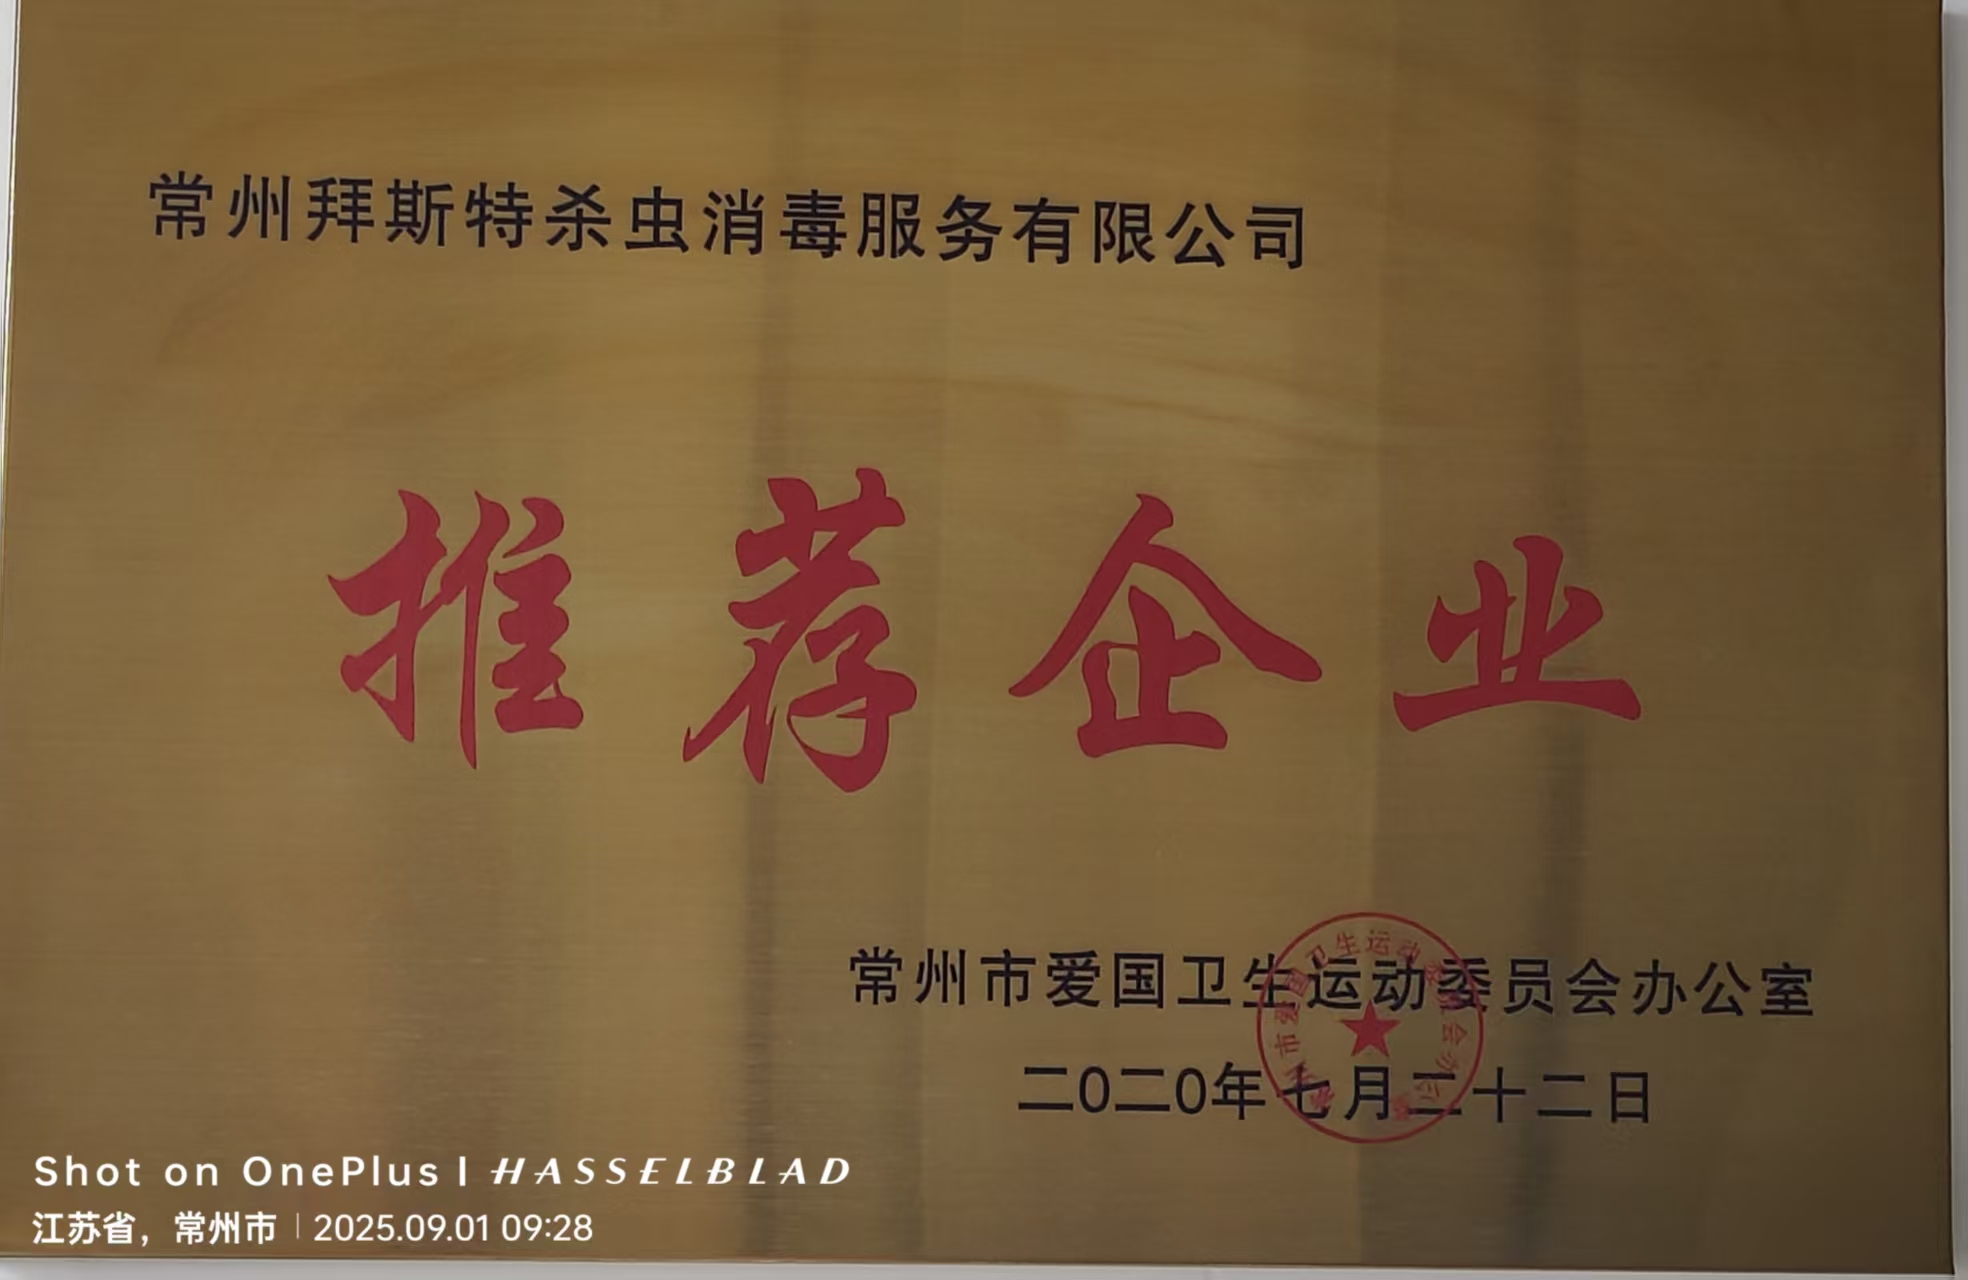 常州拜斯特杀虫消毒服务有限公司
推荐企业
常州市爱国卫生运动委员会办公室
二0二0年七月二十二日
常州市爱国卫生运动委员会办公室
Shot on OnePlus | HASSELBLAD
江苏省，常州市 | 2025.09.01 09:28